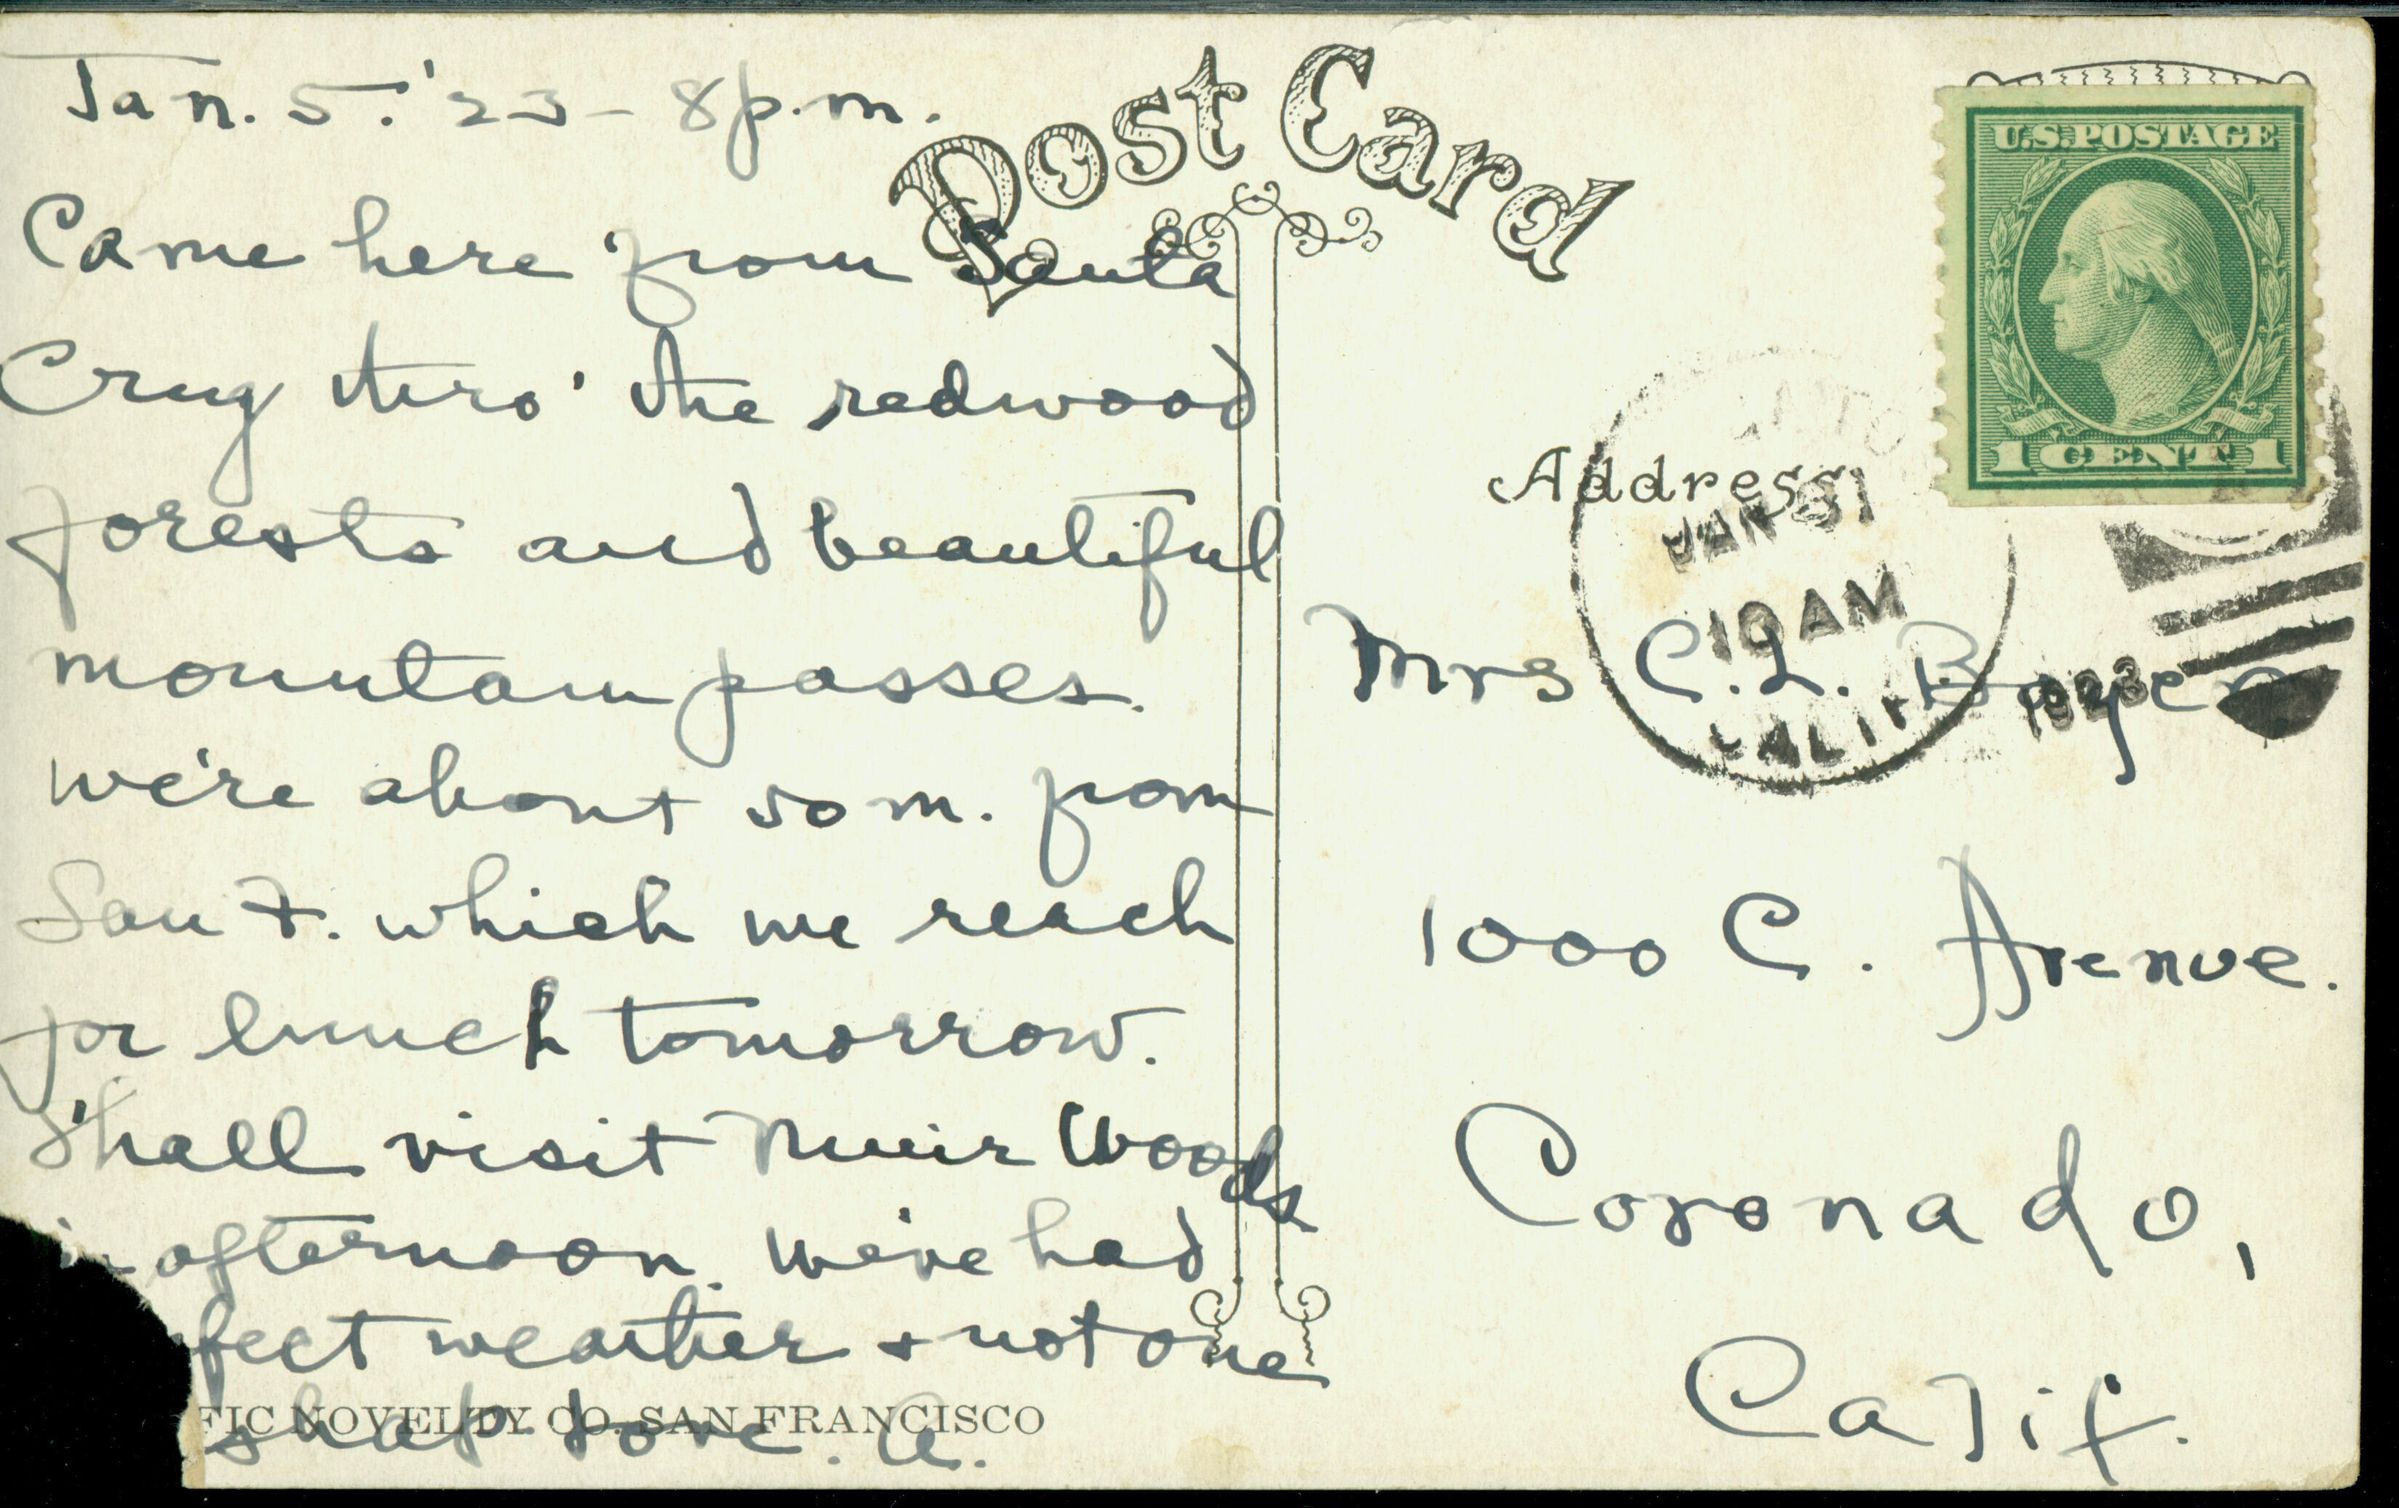 Post Card
Jan. 5. '23 - 8 p.m.
Came here from Santa
Cruz thro' the redwood
forests and beautiful
mountain passes.
We're about 50 m. from
San F. which we reach
for lunch tomorrow.
Shall visit Muir Woods
in afternoon. We've had
fect weather + not one
snap. Love. A.
FIC NOVELTY CO. SAN FRANCISCO
U.S. POSTAGE
1 CENT 1
Address
JAN 31
10 AM
1923
CALIF
Mrs C. L.
1000 C. Avenue.
Coronado,
Calif.